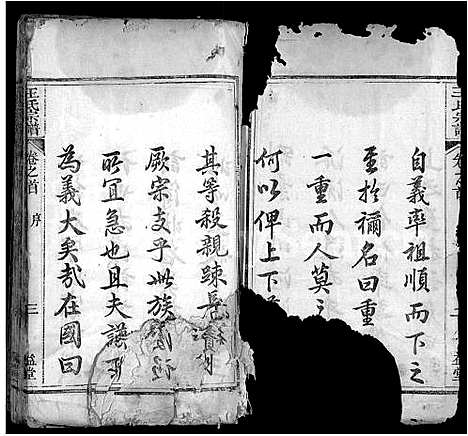 王氏宗譜
自義率祖順而下之
至於禰名曰重
一重而人莫
何以俾上下
其等殺親踈長
厥宗支乎此族
所宜急也且夫譜
為義大矣哉在國曰
王氏宗譜
卷之首
序
三
益堂
益堂